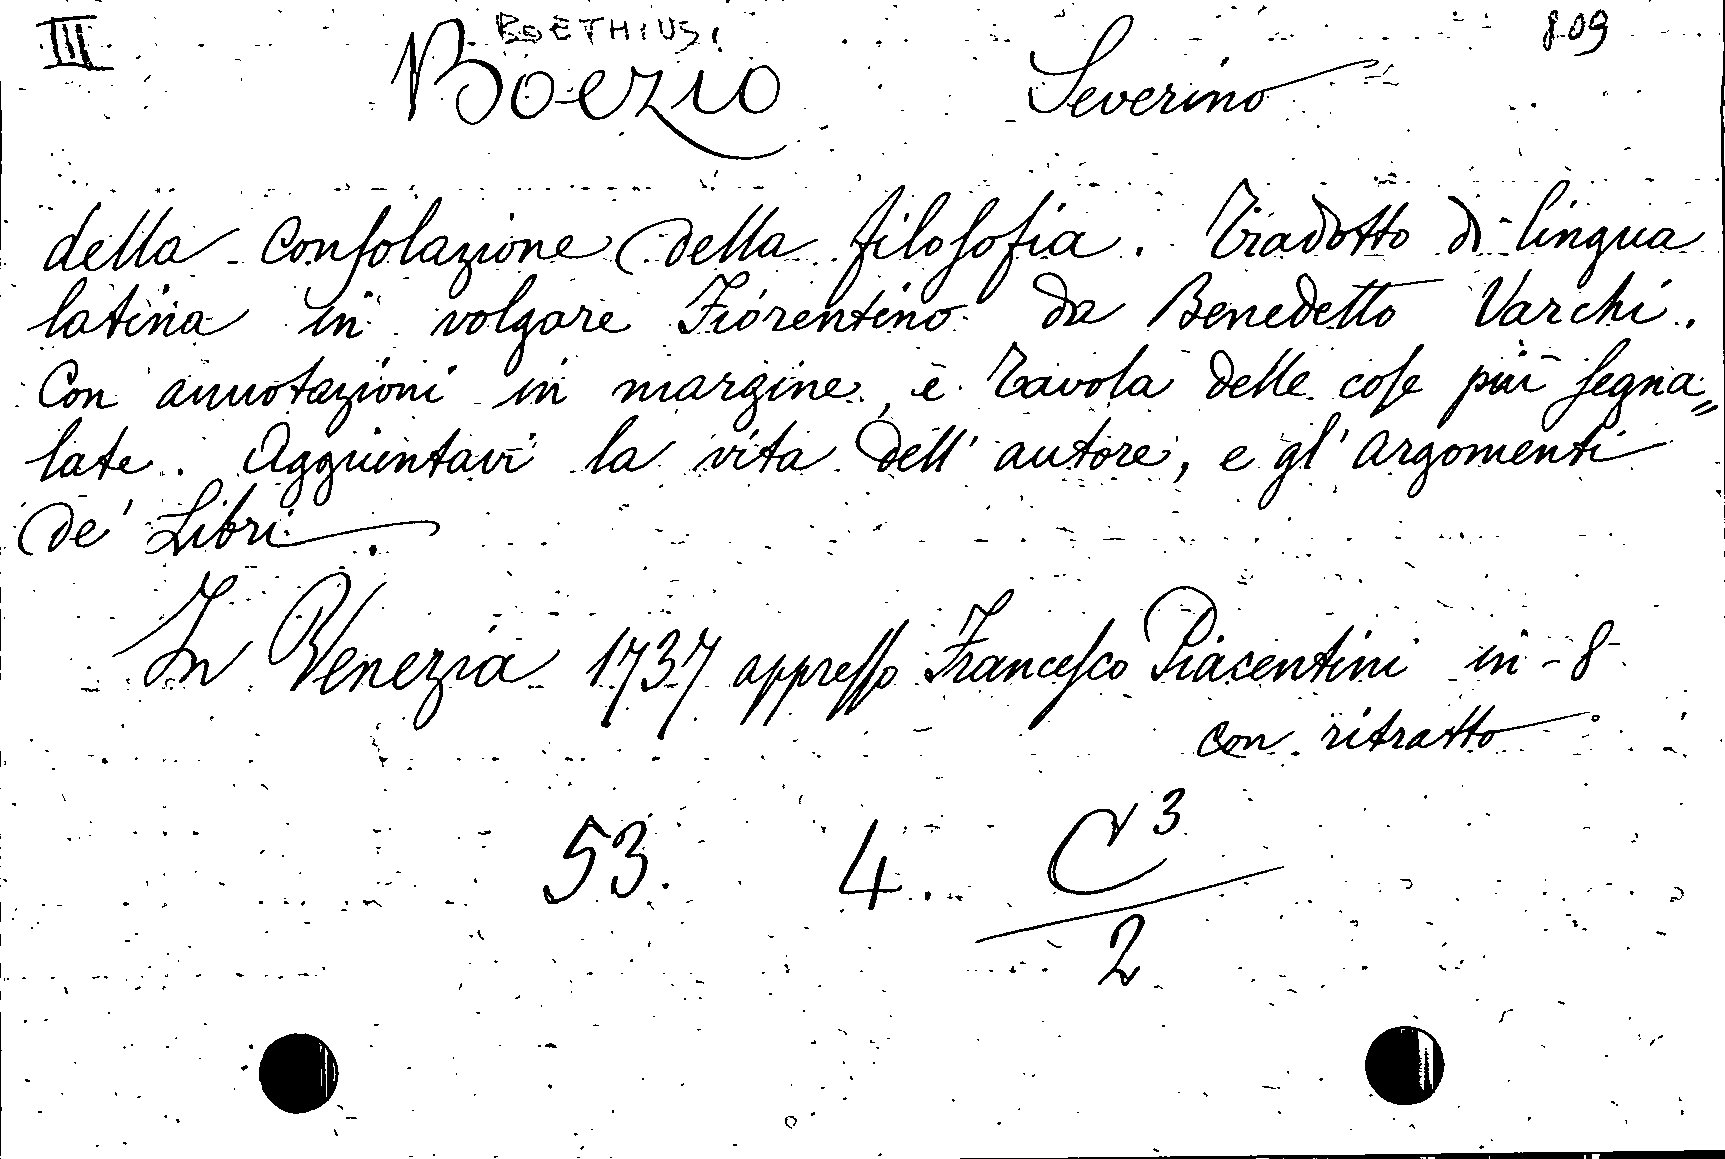 III BOETHIUS, 809
Boezio Severino
della Consolazione della filosofia. Tradotto di lingua
latina in volgare Fiorentino da Benedetto Varchi.
Con annotazioni in margine, e Tavola delle cose più segna=
late. Aggiuntavi la vita dell' autore, e gl' argomenti
de' Libri.
In Venezia 1737 appresso Francesco Piacentini in-8
con ritratto
53. 4. C 3
2